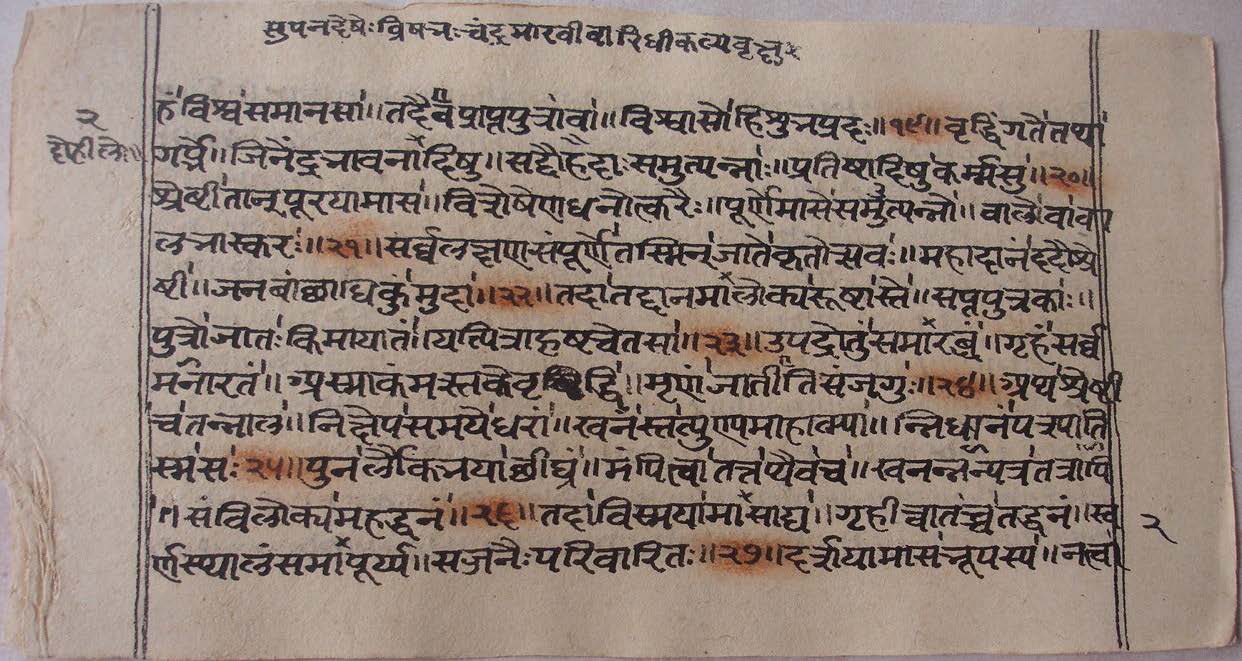 सुपनदेषेः वृिषनः चंद्रमारवीवारिधीकल्पवृक्ष
२
दोहीलेः॥
हं विश्वंसमानसा॥ तदैवप्राप्तपुत्रावा॥ विश्वासोहिशुभप्रदः॥१९॥ वृद्धिंगतेतथा
गर्भे॥ जिनेंद्रभावनादिषु॥ सद्दोहदाः समुत्पन्नाः॥ प्रतिष्ठादिषुकर्मसु॥२०॥
श्रेष्ठीतान्पूरयामास॥ विशेषेणधनोत्करैः॥ पूर्णेमासेसमुत्पन्नो॥ बालोबाबा
लभास्करः॥२१॥ सर्वलक्षणसंपूर्णे तस्मिन्जातेकृतोत्सवः॥ महादानंददौश्रे
ष्ठी॥ जनबांछाधिकुंमुदा॥२२॥ तदातद्दानमालोक्यरूष्टास्ते॥ सप्तपुत्रकाः॥
पुत्रोजातः किमायातं॥ यत्पित्राहृष्टचेतसा॥२३॥ उपद्रोतुंसमारब्धं॥ गृहंसर्व
मनारतं॥ अस्माकंमस्तकेवृद्धि॥ मृणांजातीतिसंजगुः॥२४॥ अथश्रेष्ठी
चतन्नालं॥ निक्षेपसमयेधरां॥ खनंस्तत्पुण्यमाहात्म्या॥ न्निधानंपत्रपाति
स्मसः२५॥ पुनर्लौकिभयाछीघ्रं॥ मंपित्वातत्रप्येवच॥ खनन्नन्यत्रतत्रापि
॥ संविलोक्यमहद्धनं॥२६॥ तदाविस्मयामासाद्य॥ गृहीत्वातच्चतद्धनं॥ स्व
र्णस्थालंसमापूर्य्य॥ सज्जनैः परिवारितः॥२७॥ दर्शयामासभूपस्य॥ नत्वा
२